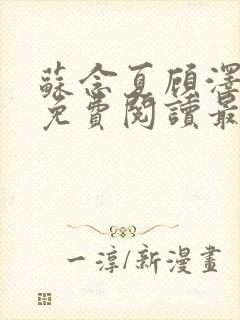 蘇念夏顾澤
免費閱讀最
一淳/新漫畫